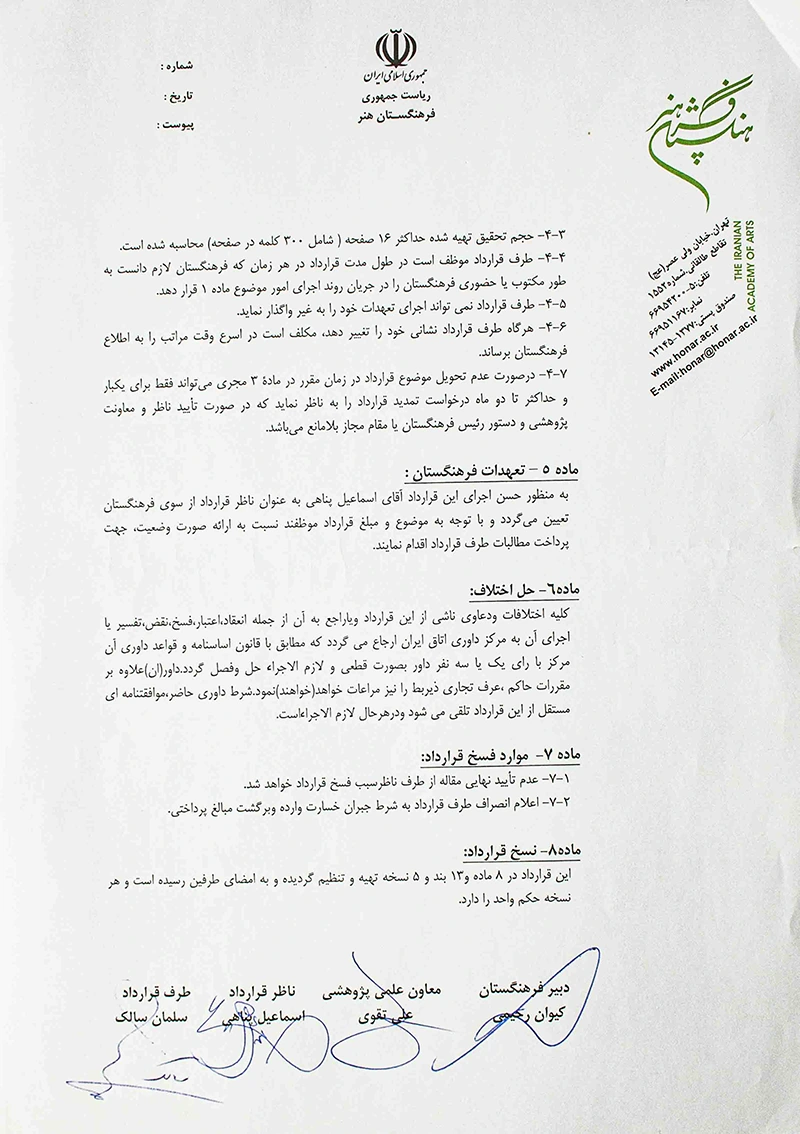 جمهوری اسلامی ایران
ریاست جمهوری
فرهنگستان هنر
شماره :
تاریخ :
پیوست :
فرهنگستان هنر
THE IRANIAN
ACADEMY OF ARTS
تهران، خیابان ولی عصر(عج)
تقاطع طالقانی، شماره ۱۵۵۲
تلفن: ۵-۶۶۹۵۴۲۰۰
نمابر: ۶۶۹۵۱۱۶۷
صندوق پستی: ۱۳۷۷-۱۳۱۴۵
www.honar.ac.ir
E-mail:honar@honar.ac.ir
۴-۳- حجم تحقیق تهیه شده حداکثر ۱۶ صفحه ( شامل ۳۰۰ کلمه در صفحه) محاسبه شده است.
۴-۴- طرف قرارداد موظف است در طول مدت قرارداد در هر زمان که فرهنگستان لازم دانست به
طور مکتوب یا حضوری فرهنگستان را در جریان روند اجرای امور موضوع ماده ۱ قرار دهد.
۴-۵- طرف قرارداد نمی تواند اجرای تعهدات خود را به غیر واگذار نماید.
۴-۶- هرگاه طرف قرارداد نشانی خود را تغییر دهد، مکلف است در اسرع وقت مراتب را به اطلاع
فرهنگستان برساند.
۴-۷- درصورت عدم تحویل موضوع قرارداد در زمان مقرر در مادهٔ ۳ مجری می‌تواند فقط برای یکبار
و حداکثر تا دو ماه درخواست تمدید قرارداد را به ناظر نماید که در صورت تأیید ناظر و معاونت
پژوهشی و دستور رئیس فرهنگستان یا مقام مجاز بلامانع می‌باشد.
ماده ۵ - تعهدات فرهنگستان :
به منظور حسن اجرای این قرارداد آقای اسماعیل پناهی به عنوان ناظر قرارداد از سوی فرهنگستان
تعیین می‌گردد و با توجه به موضوع و مبلغ قرارداد موظفند نسبت به ارائه صورت وضعیت، جهت
پرداخت مطالبات طرف قرارداد اقدام نمایند.
ماده۶- حل اختلاف:
کلیه اختلافات ودعاوی ناشی از این قرارداد ویاراجع به آن از جمله انعقاد،اعتبار،فسخ،نقض،تفسیر یا
اجرای آن به مرکز داوری اتاق ایران ارجاع می گردد که مطابق با قانون اساسنامه و قواعد داوری آن
مرکز با رای یک یا سه نفر داور بصورت قطعی و لازم الاجراء حل وفصل گردد.داور(ان)علاوه بر
مقررات حاکم ،عرف تجاری ذیربط را نیز مراعات خواهد(خواهند)نمود.شرط داوری حاضر،موافقتنامه ای
مستقل از این قرارداد تلقی می شود ودرهرحال لازم الاجراءاست.
ماده ۷- موارد فسخ قرارداد:
۷-۱- عدم تأیید نهایی مقاله از طرف ناظرسبب فسخ قرارداد خواهد شد.
۷-۲- اعلام انصراف طرف قرارداد به شرط جبران خسارت وارده وبرگشت مبالغ پرداختی.
ماده۸- نسخ قرارداد:
این قرارداد در ۸ ماده و۱۳ بند و ۵ نسخه تهیه و تنظیم گردیده و به امضای طرفین رسیده است و هر
نسخه حکم واحد را دارد.
دبیر فرهنگستان معاون علمی پژوهشی ناظر قرارداد طرف قرارداد
کیوان رحیمی علی تقوی اسماعیل پناهی سلمان سالک